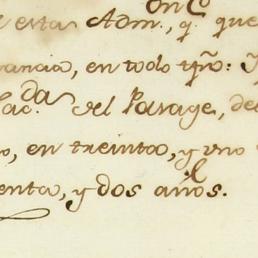 esta Adm.on, q. que
ancia, en todo tpño:
Hac.da del Parage, del
o, en treinta, y uno
enta, y dos años.